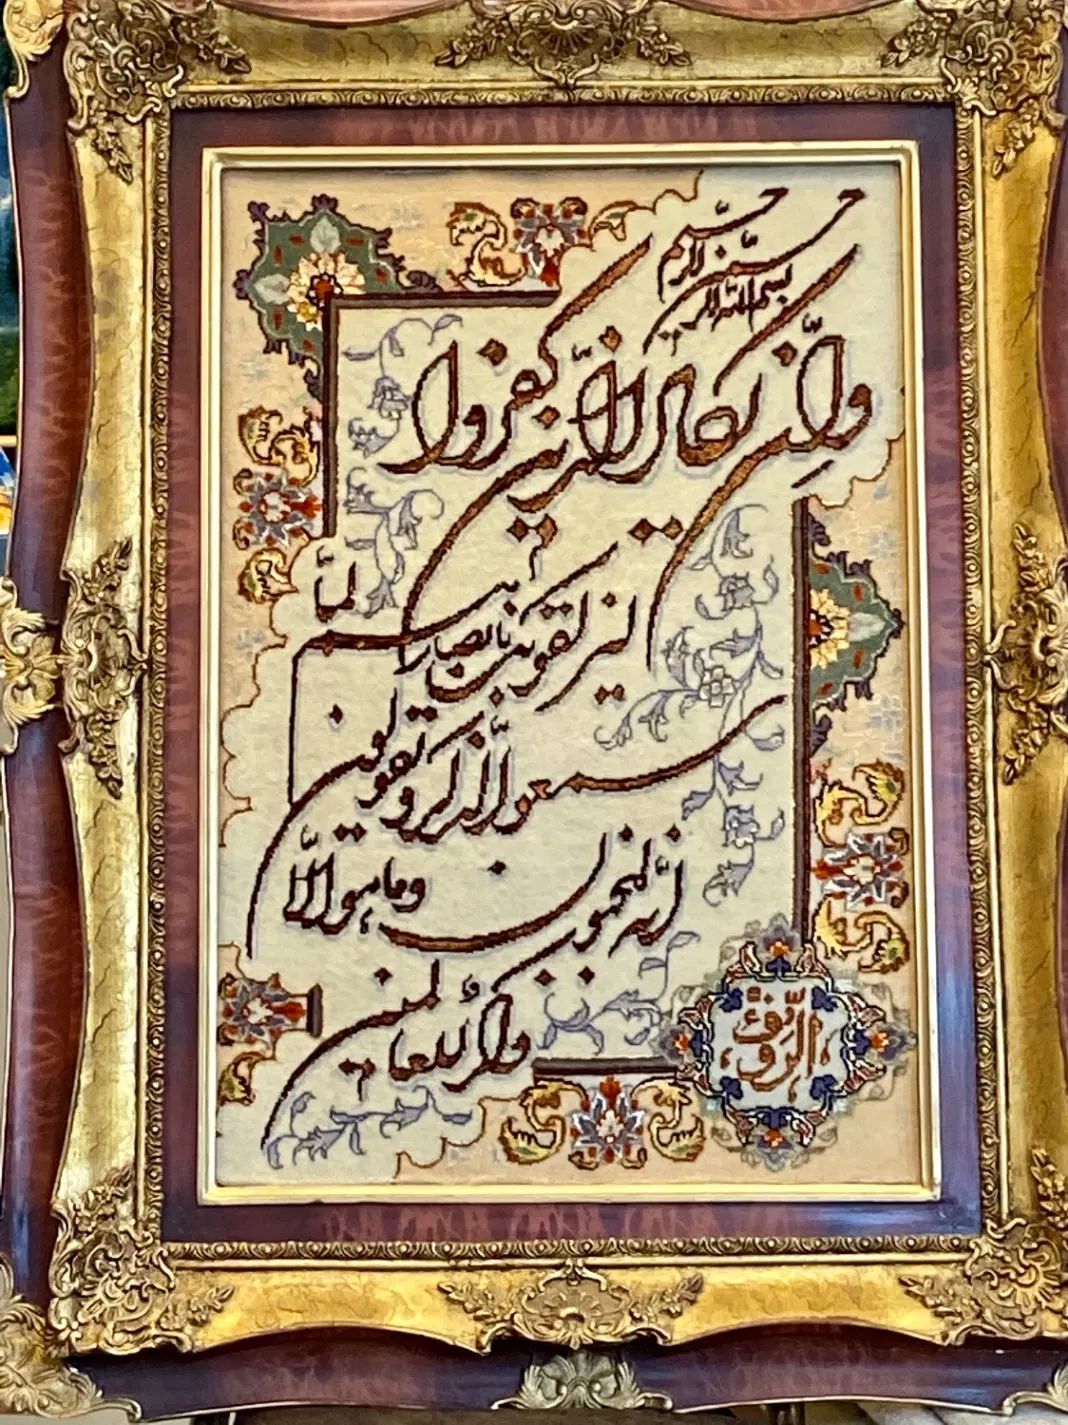 بسم الله الرحمن الرحیم
وَاِن یَکادُ الَّذینَ کَفَرُوا
لَیُزلِقونَکَ بِاَبصارِهِم لَمّا
سَمِعُوا الذِّکرَ وَ یَقولونَ
اِنَّهُ لَمَجنون وَ ما هُوَ اِلّا
ذِکرٌ لِلعالَمین
الرَّؤُفُ